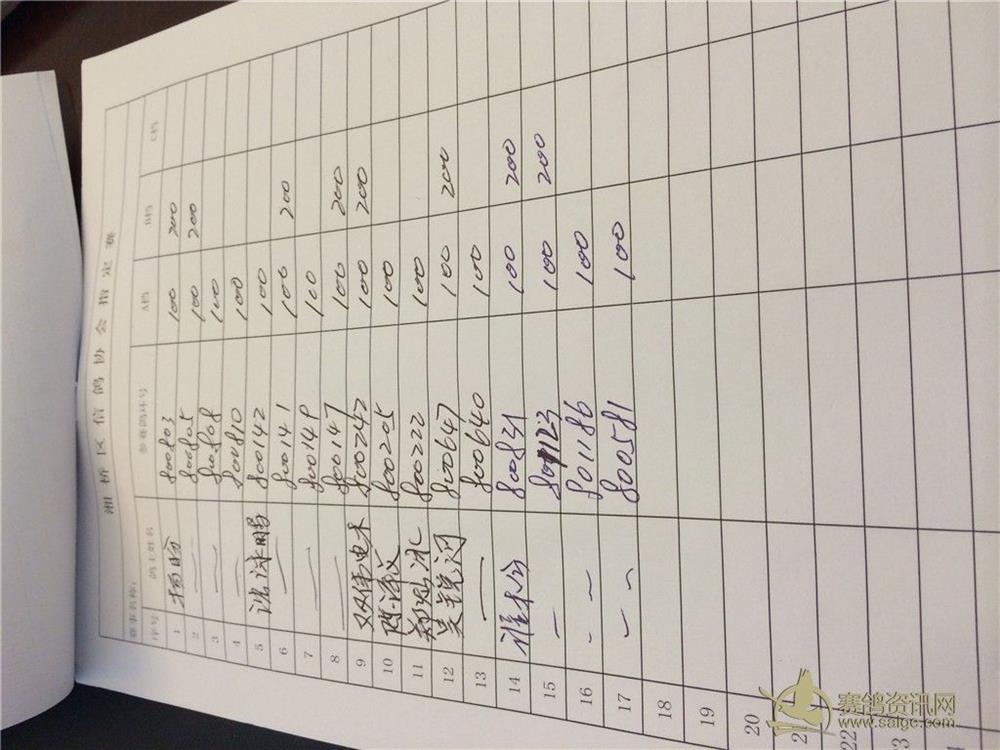 湘桥区信鸽协会指定赛
赛事名称:
序号 鸽主姓名 参赛鸽环号 A档 B档 C档
1 杨鸣 800803 100 200
2 — 800805 100 200
3 — 800808 100
4 — 800810 100
5 沈泳鹏 800142 100
6 — 800141 100 200
7 — 800149 100
8 — 800147 100 200
9 800242 100 200
10 800205 100
11 800222 100
12 800647 100 200
13 — 800640 100
14 800831 100 200
15 — 801123 100 200
16 801186 100
17 800581 100
18
19
20
22
赛鸽资讯网
www.saigc.com